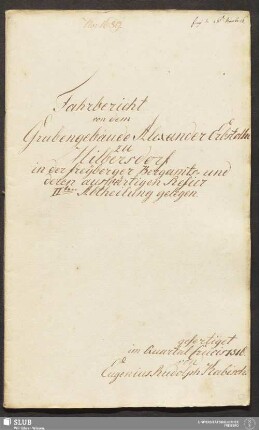 Fahrbericht
von dem
Grubengebäude Alexander Erbstolln
zu
Hilbersdorf
in der freyberger Bergamts- und
deren auswärtigen Refier
IIter Abtheilung gelegen.
gefertiget
im Quartal 1816.
von
Eugenius Rudolph
SLUB